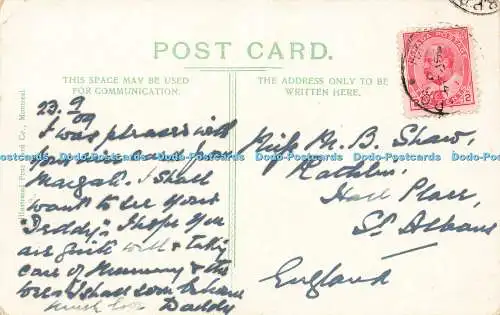 POST CARD.
THIS SPACE MAY BE USED
FOR COMMUNICATION.
THE ADDRESS ONLY TO BE
WRITTEN HERE.
Illustrated Post Card Co., Montreal
CANADA POSTAGE
2
23. 9/09
I was pleased with
card from
Margate. I shall
want to see your
"Teddy". I hope you
are quite well & taking
care of Mummy & the
I shall soon be home
much love Daddy
Miss M. B. Shaw,
Hall Place,
St Albans
England
Dodo-Postcards Dodo-Postcards Dodo-Postcards Dodo-Postcards Dodo-Postcards Dodo-Postcards